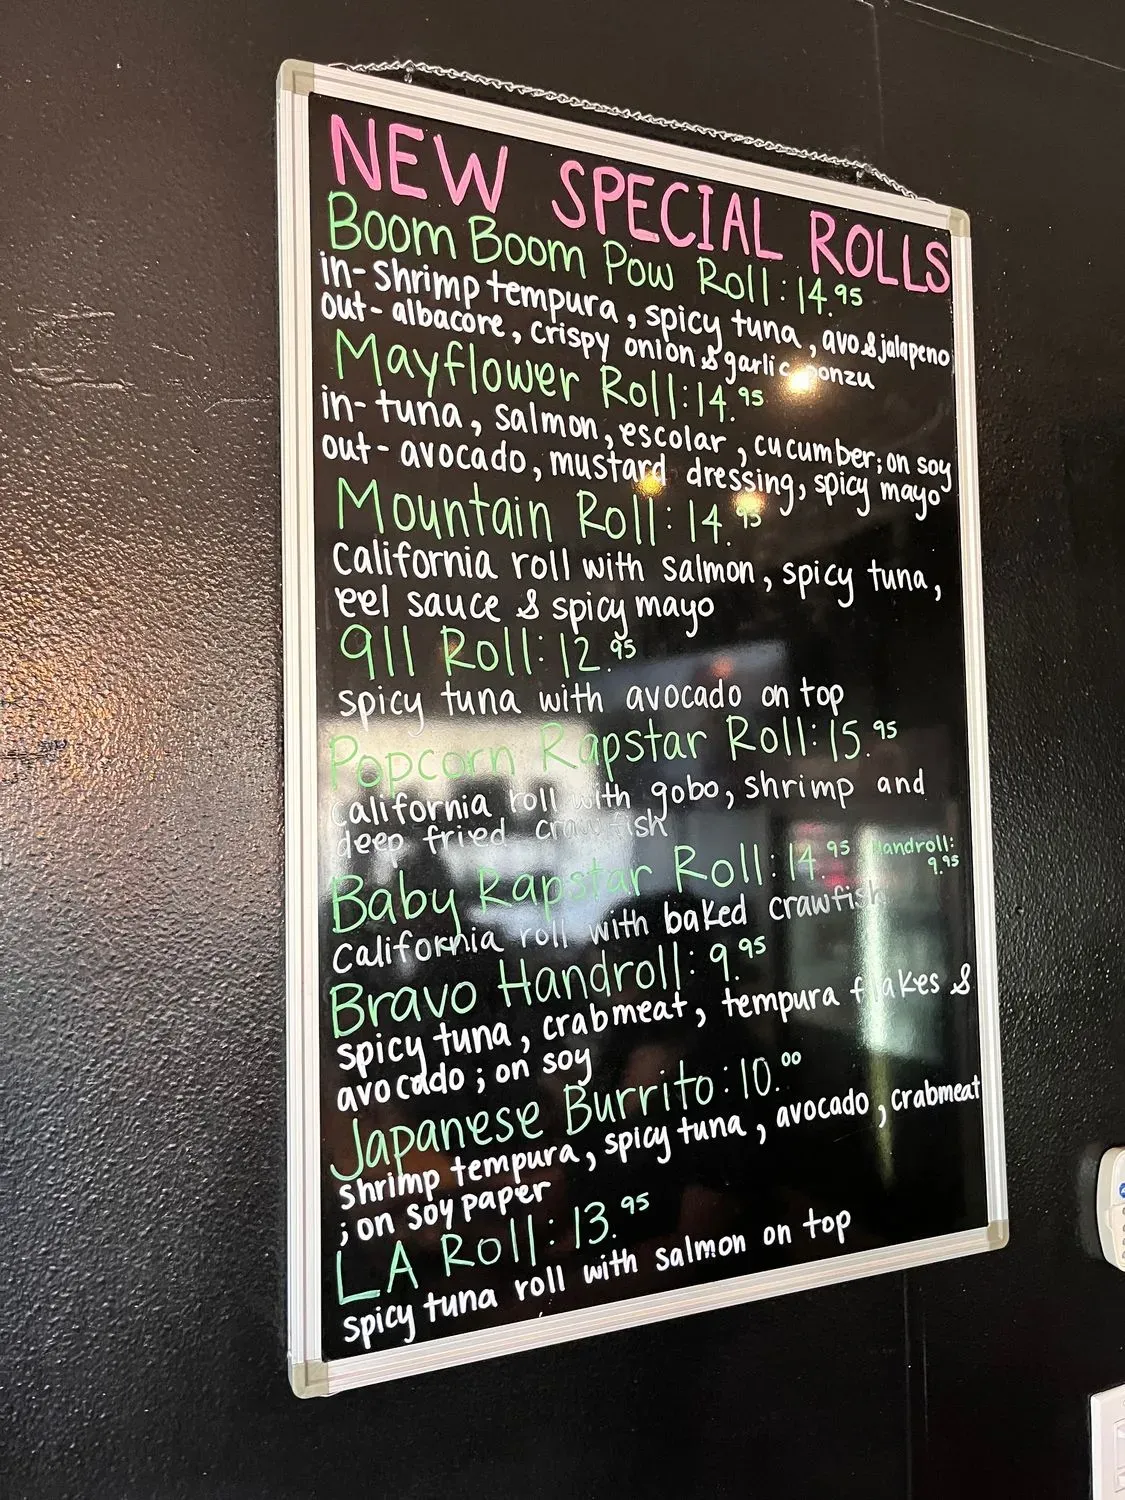 NEW SPECIAL ROLLS
Boom Boom Pow Roll: 14.95
in- shrimp tempura, spicy tuna, avo & jalapeno
out- albacore, crispy onion & garlic ponzu
Mayflower Roll: 14.95
in- tuna, salmon, escolar, cucumber; on soy
out- avocado, mustard dressing, spicy mayo
Mountain Roll: 14.95
California roll with salmon, spicy tuna,
eel sauce & spicy mayo
911 Roll: 12.95
spicy tuna with avocado on top
Popcorn Rapstar Roll: 15.95
California roll with gobo, shrimp and
deep fried crawfish
Baby Rapstar Roll: 14.95 Handroll:
9.95
California roll with baked crawfish
Bravo Handroll: 9.95
spicy tuna, crabmeat, tempura flakes &
avocado; on soy
Japanese Burrito: 10.00
shrimp tempura, spicy tuna, avocado, crabmeat
; on soy paper
LA Roll: 13.95
spicy tuna roll with salmon on top